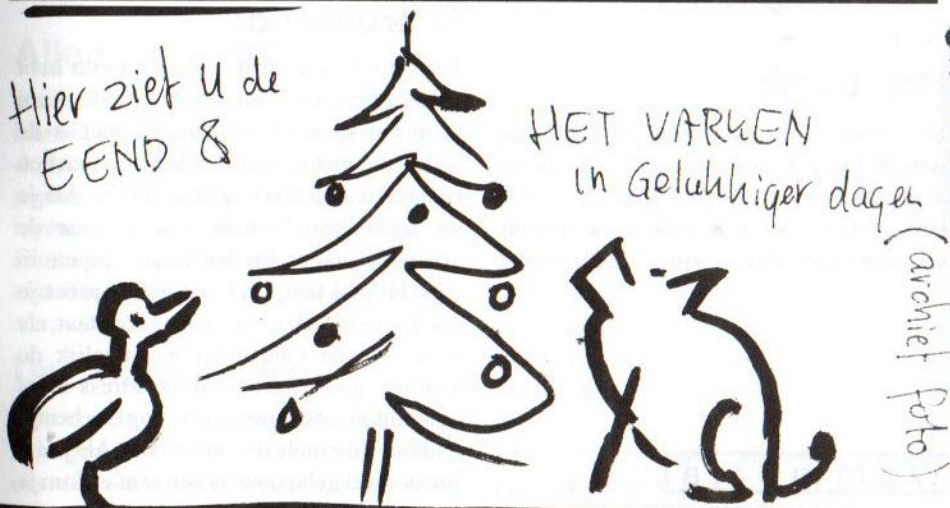 Hier ziet U de
EEND &
HET VARKEN
in Gelukkiger dagen
(archief foto)